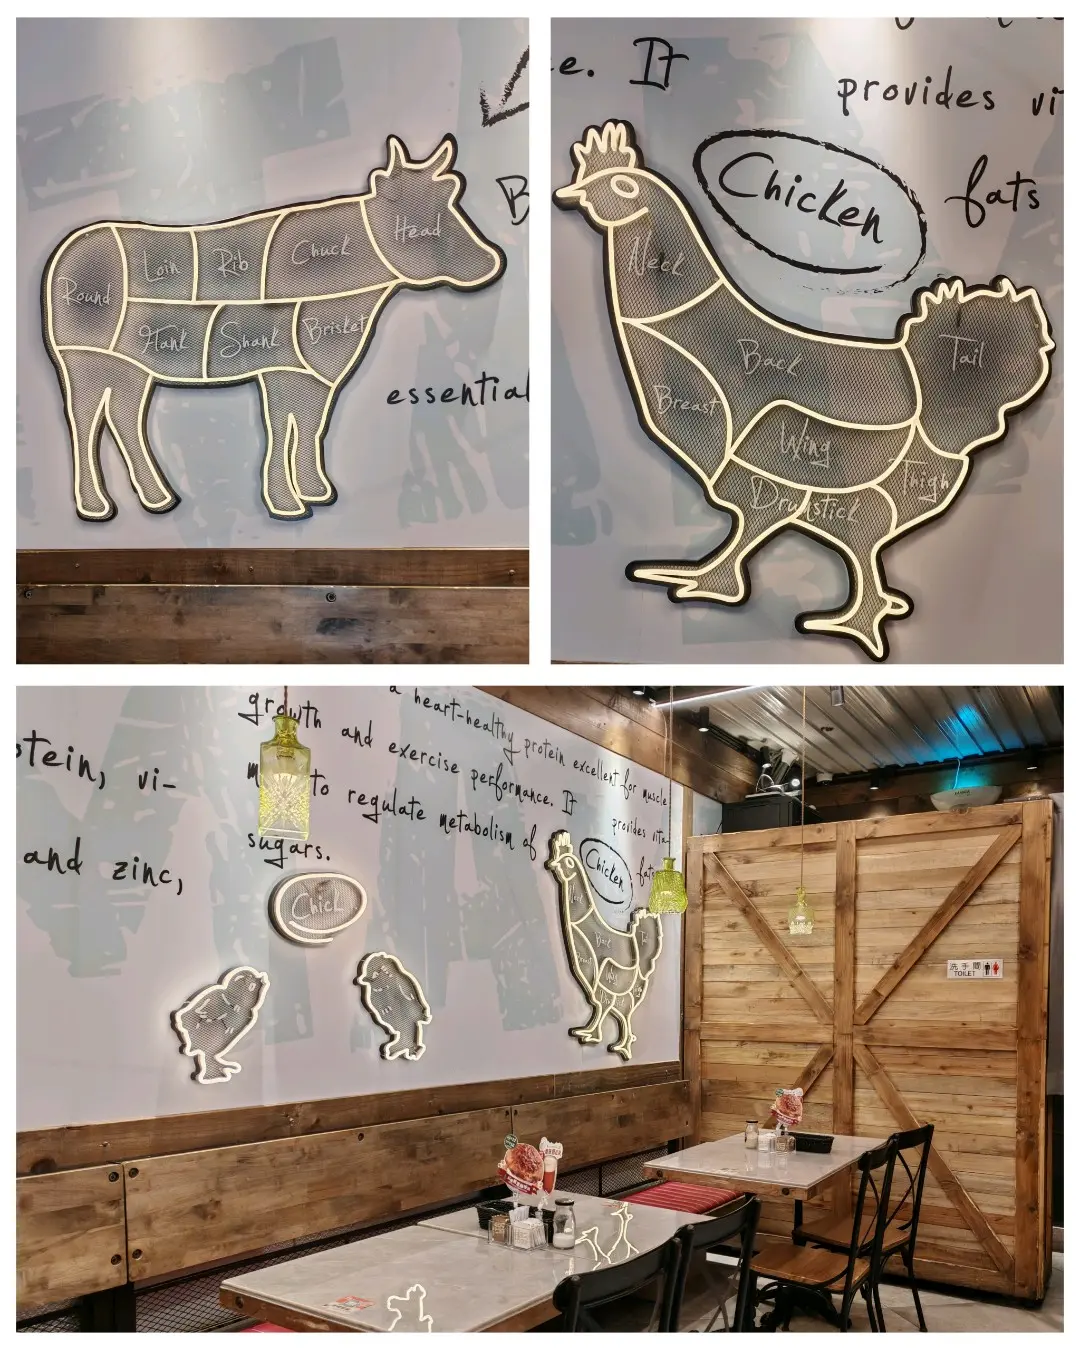 Head
Chuck
Rib
Loin
Round
Hank
Shank
Brisket
B
essential
e. It
provides vi
Chicken
fats
Neck
Back
Breast
Wing
Tail
Thigh
Drumstick
otein, vi-
and zinc,
growth and exercise performance. It
a heart-healthy protein excellent for muscle
to regulate metabolism of
provides vita-
sugars.
Chicken
fats
Chick
Back
Wing
洗手間
TOILET